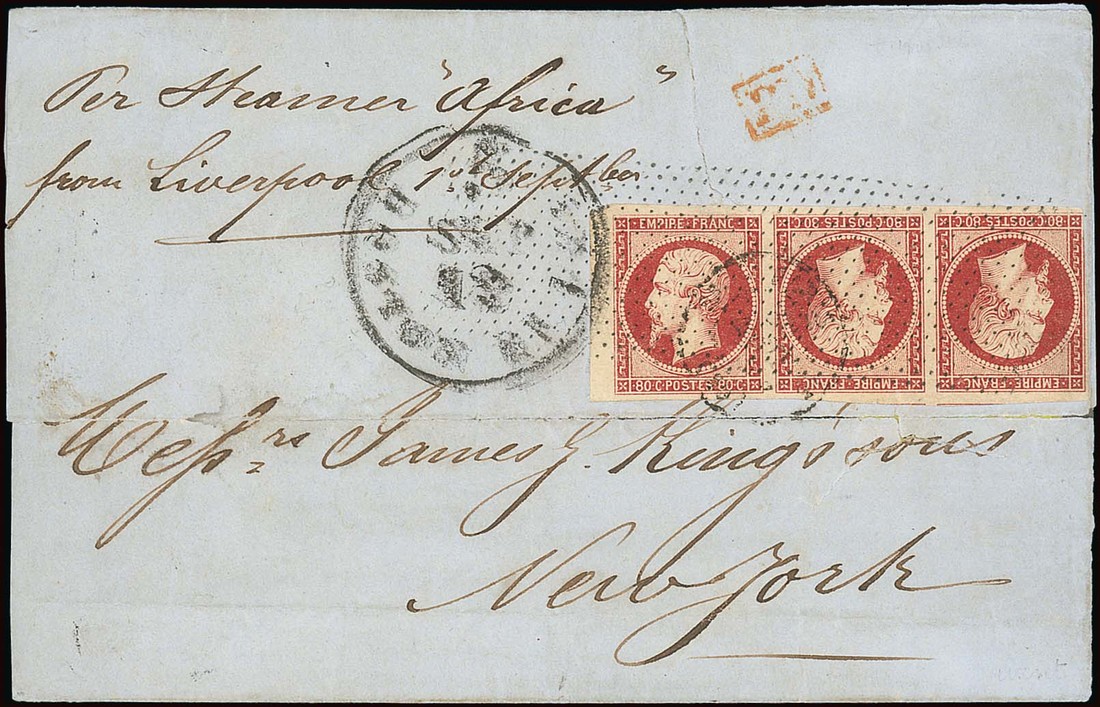 Per Steamer "Africa"
from Liverpool 1st Septber
EMPIRE·FRANC
80·C·POSTES·80·C
80·C·POSTES·80·C
EMPIRE·FRANC
80·C·POSTES·80·C
EMPIRE·FRANC
Messrs James G. King's sons
New York